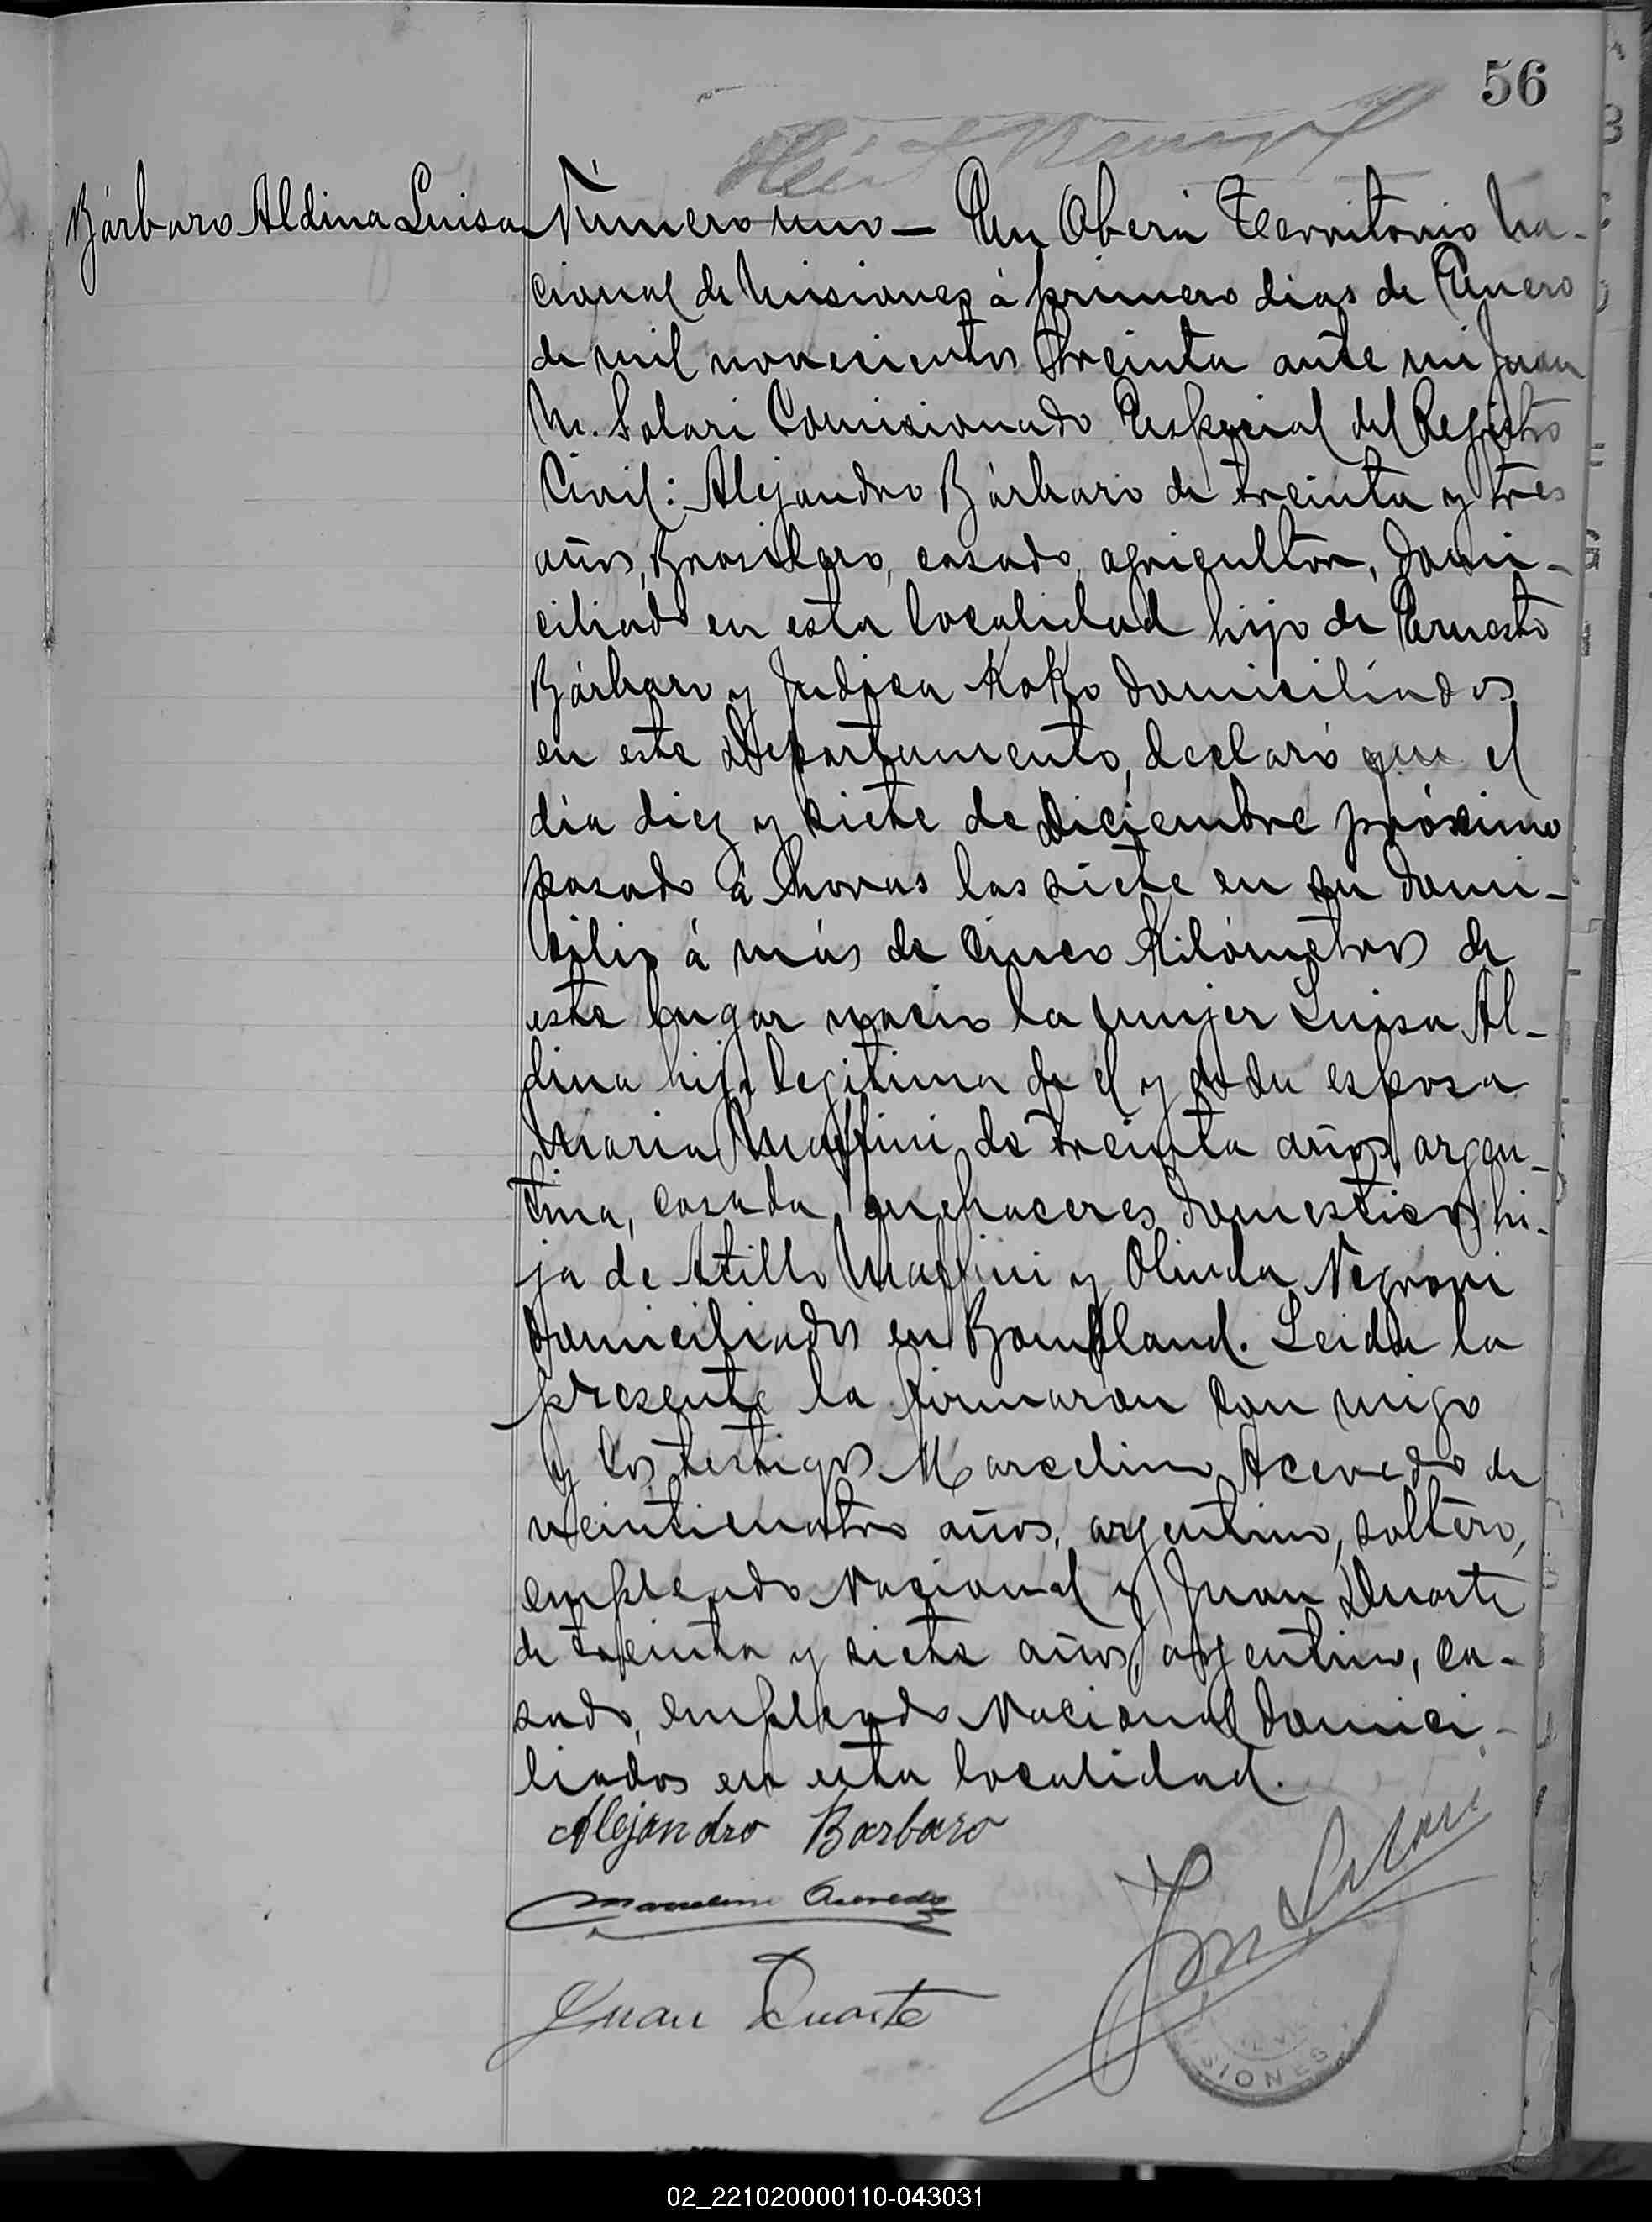 56
Bárbaro Aldina Luisa
Número uno — En Oberá Territorio Na-
cional de Misiones á primero dias de Enero
de mil novecientos treinta ante mi Juan
M. Solari Comisionado Especial del Registro
Civil: Alejandro Bárbaro de treinta y tres
años, Brasilero, casado, agricultor, domi-
ciliado en esta localidad hijo de Ernesto
Bárbaro y Judica Koko domiciliados
en este Departamento, declaró que el
día diez y siete de Diciembre próximo
pasado á horas las siete en su domi-
cilio á más de cinco Kilómetros de
este lugar nació la mujer Luisa Al-
dina hija legitima de el y de su esposa
Maria Maffini de treinta años, argen-
tina, casada, quehaceres domesticos, hi-
ja de Atillo Maffini y Olinda Negroni
domiciliados en Bompland. Leida la
presente la firmarón con migo
y los testigos Marcelino Acevedo de
veinticuatro años, argentino, soltero,
empleado Nacional y Juan Duarte
de treinta y siete años, argentino, ca-
sado, empleado Nacional domici-
liados en esta localidad.
Alejandro Barbaro
Marcelino Acevedo
Juan Duarte
J M Solari
SIONES
02_221020000110-043031